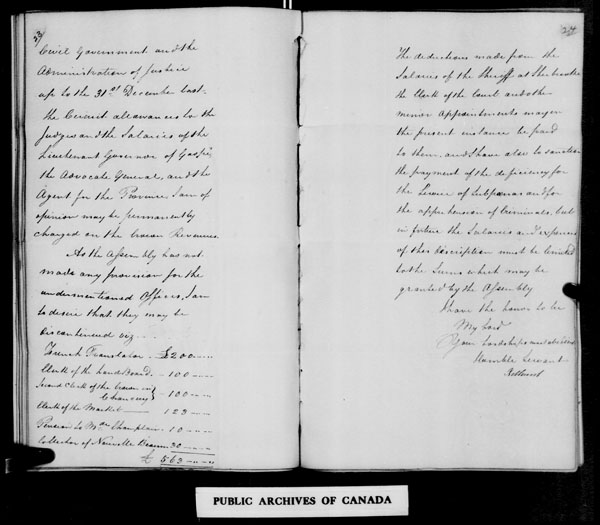 23
Civil Government and the
Administration of Justice
up to the 31st December last.
the Circuit allowances to the
Judges and the Salaries of the
Lieutenant Governor of Gaspé,
the Advocate General, and the
Agent for the Province I am of
opinion may be permanently
charged on the Crown Revenues.
As the Assembly has not
made any provision for the
undermentioned Offices, I am
to desire that they may be
discontinued viz
French Translator £200
Clerk of the Land Board 100
Second Clerk of the Crown in Chancery 100
Clerk of the Market 123
Pension to Champlain 10
Collector of Nouvelle Beauce 30
£ 563
24
The deductions made from the
Salaries of the Sheriff at Sherbrooke
the Clerk of the Court and other
minor appointments may in
the present instance be paid
to them, and I have also to sanction
the payment of the deficiency for
the Service of Subpœnas and for
the apprehension of Criminals, but
in future the Salaries and expences
of this description must be limited
to the Sums which may be
granted by the Assembly
I have the honor to be
My Lord
Your Lordships most obedient
Humble Servant
Bathurst
PUBLIC ARCHIVES OF CANADA